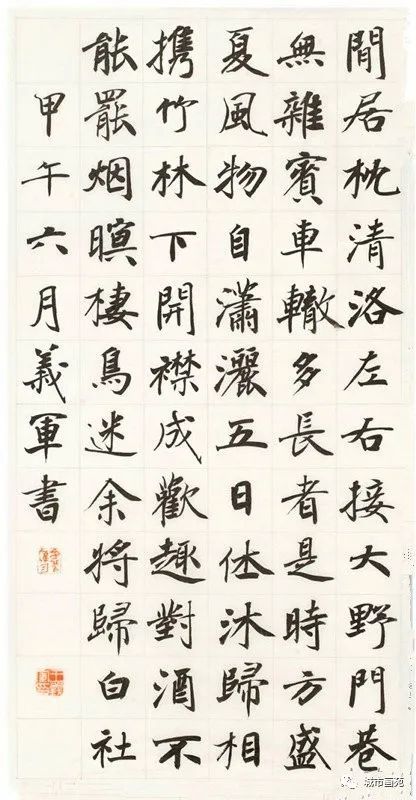 閒居枕清洛左右接大野門巷
無雜賓車轍多長者是時方盛
夏風物自瀟灑五日休沐歸相
攜竹林下開襟成歡趣對酒不
能罷烟暝棲鳥迷余將歸白社
甲午六月義軍書
城市画苑